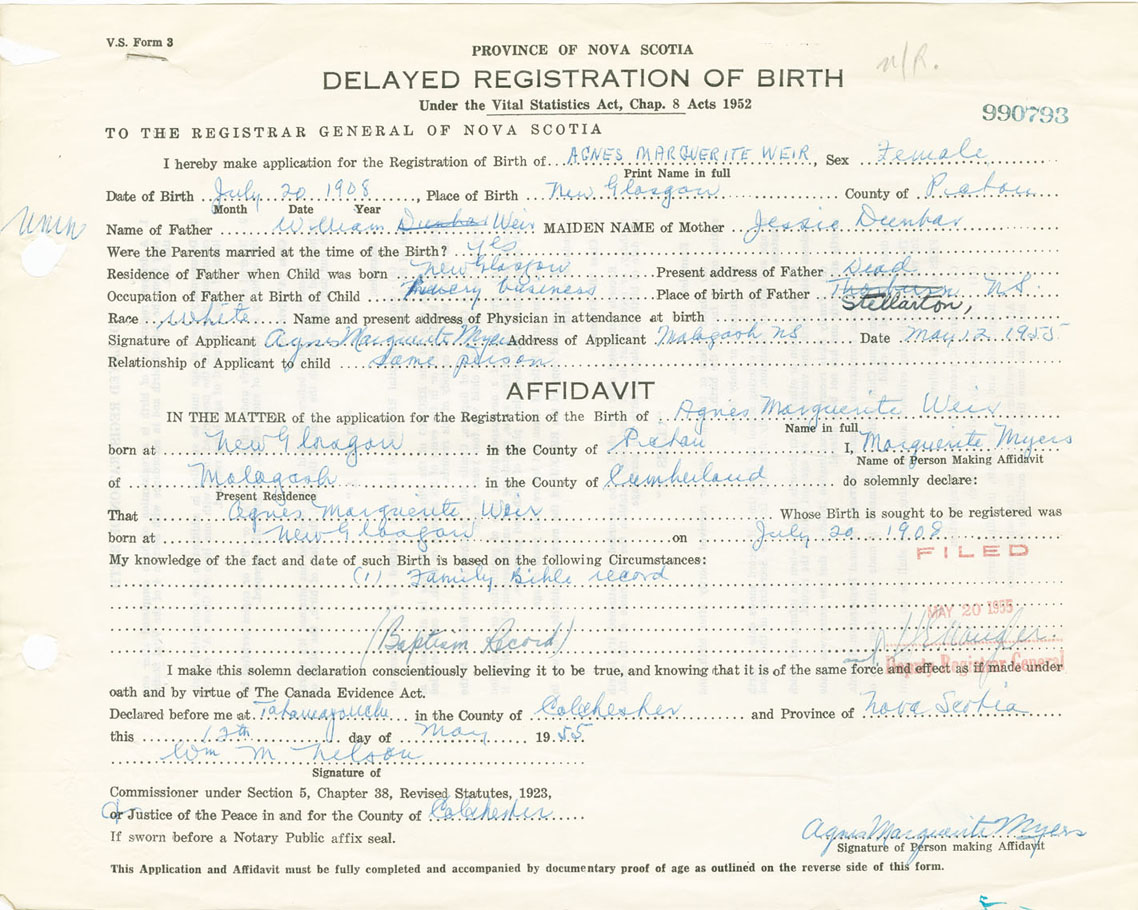 V.S. Form 3
PROVINCE OF NOVA SCOTIA
n/R.
DELAYED REGISTRATION OF BIRTH
Under the Vital Statistics Act, Chap. 8 Acts 1952
990793
TO THE REGISTRAR GENERAL OF NOVA SCOTIA
I hereby make application for the Registration of Birth of AGNES MARGUERITE WEIR, Sex Female
Print Name in full
Date of Birth July 20 1908, Place of Birth New Glasgow County of Pictou
Month Date Year
Name of Father William Dunbar Weir MAIDEN NAME of Mother Jessie Dunbar
Were the Parents married at the time of the Birth? yes
Residence of Father when Child was born New Glasgow Present address of Father Dead
Occupation of Father at Birth of Child business Place of birth of Father Thorburn N.S.
Stellarton,
Race White Name and present address of Physician in attendance at birth
Signature of Applicant Agnes Marguerite Myers Address of Applicant Malagash NS Date May 12 1955
Relationship of Applicant to child same person
AFFIDAVIT
IN THE MATTER of the application for the Registration of the Birth of Agnes Marguerite Weir
Name in full
born at New Glasgow in the County of Pictou I, Marguerite Myers
Name of Person Making Affidavit
of Malagash in the County of Cumberland do solemnly declare:
Present Residence
That Agnes Marguerite Weir Whose Birth is sought to be registered was
born at New Glasgow on July 20 1908
FILED
My knowledge of the fact and date of such Birth is based on the following Circumstances:
(1) Family Bible record
MAY 20 1955
(Baptism Record)
Deputy Registrar General
I make this solemn declaration conscientiously believing it to be true, and knowing that it is of the same force and effect as if made under
oath and by virtue of The Canada Evidence Act.
Declared before me at Tatamagouche in the County of Colchester and Province of Nova Scotia
this 12th day of May 1955
Wm M Nelson
Signature of
Commissioner under Section 5, Chapter 38, Revised Statutes, 1923,
or Justice of the Peace in and for the County of Colchester
If sworn before a Notary Public affix seal.
Agnes Marguerite Myers
Signature of Person making Affidavit
This Application and Affidavit must be fully completed and accompanied by documentary proof of age as outlined on the reverse side of this form.